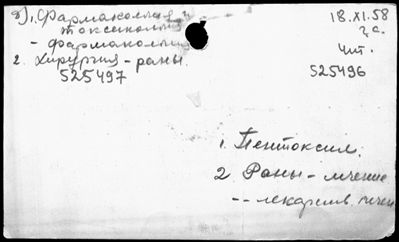 д) 1. Фармакология и
токсикология
- фармакология
2. Хирургия - раны.
525497
18.XI.58
2 с.
Чит.
525496
1. Пентоксил.
2. Раны - лечение
-- лекарств. лечен